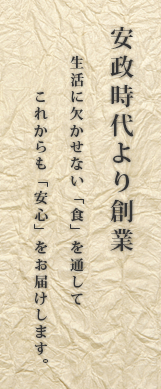 安政時代より創業
生活に欠かせない「食」を通して
これからも「安心」をお届けします。